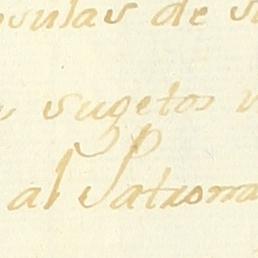 sulas de
sugetos
al Patrona